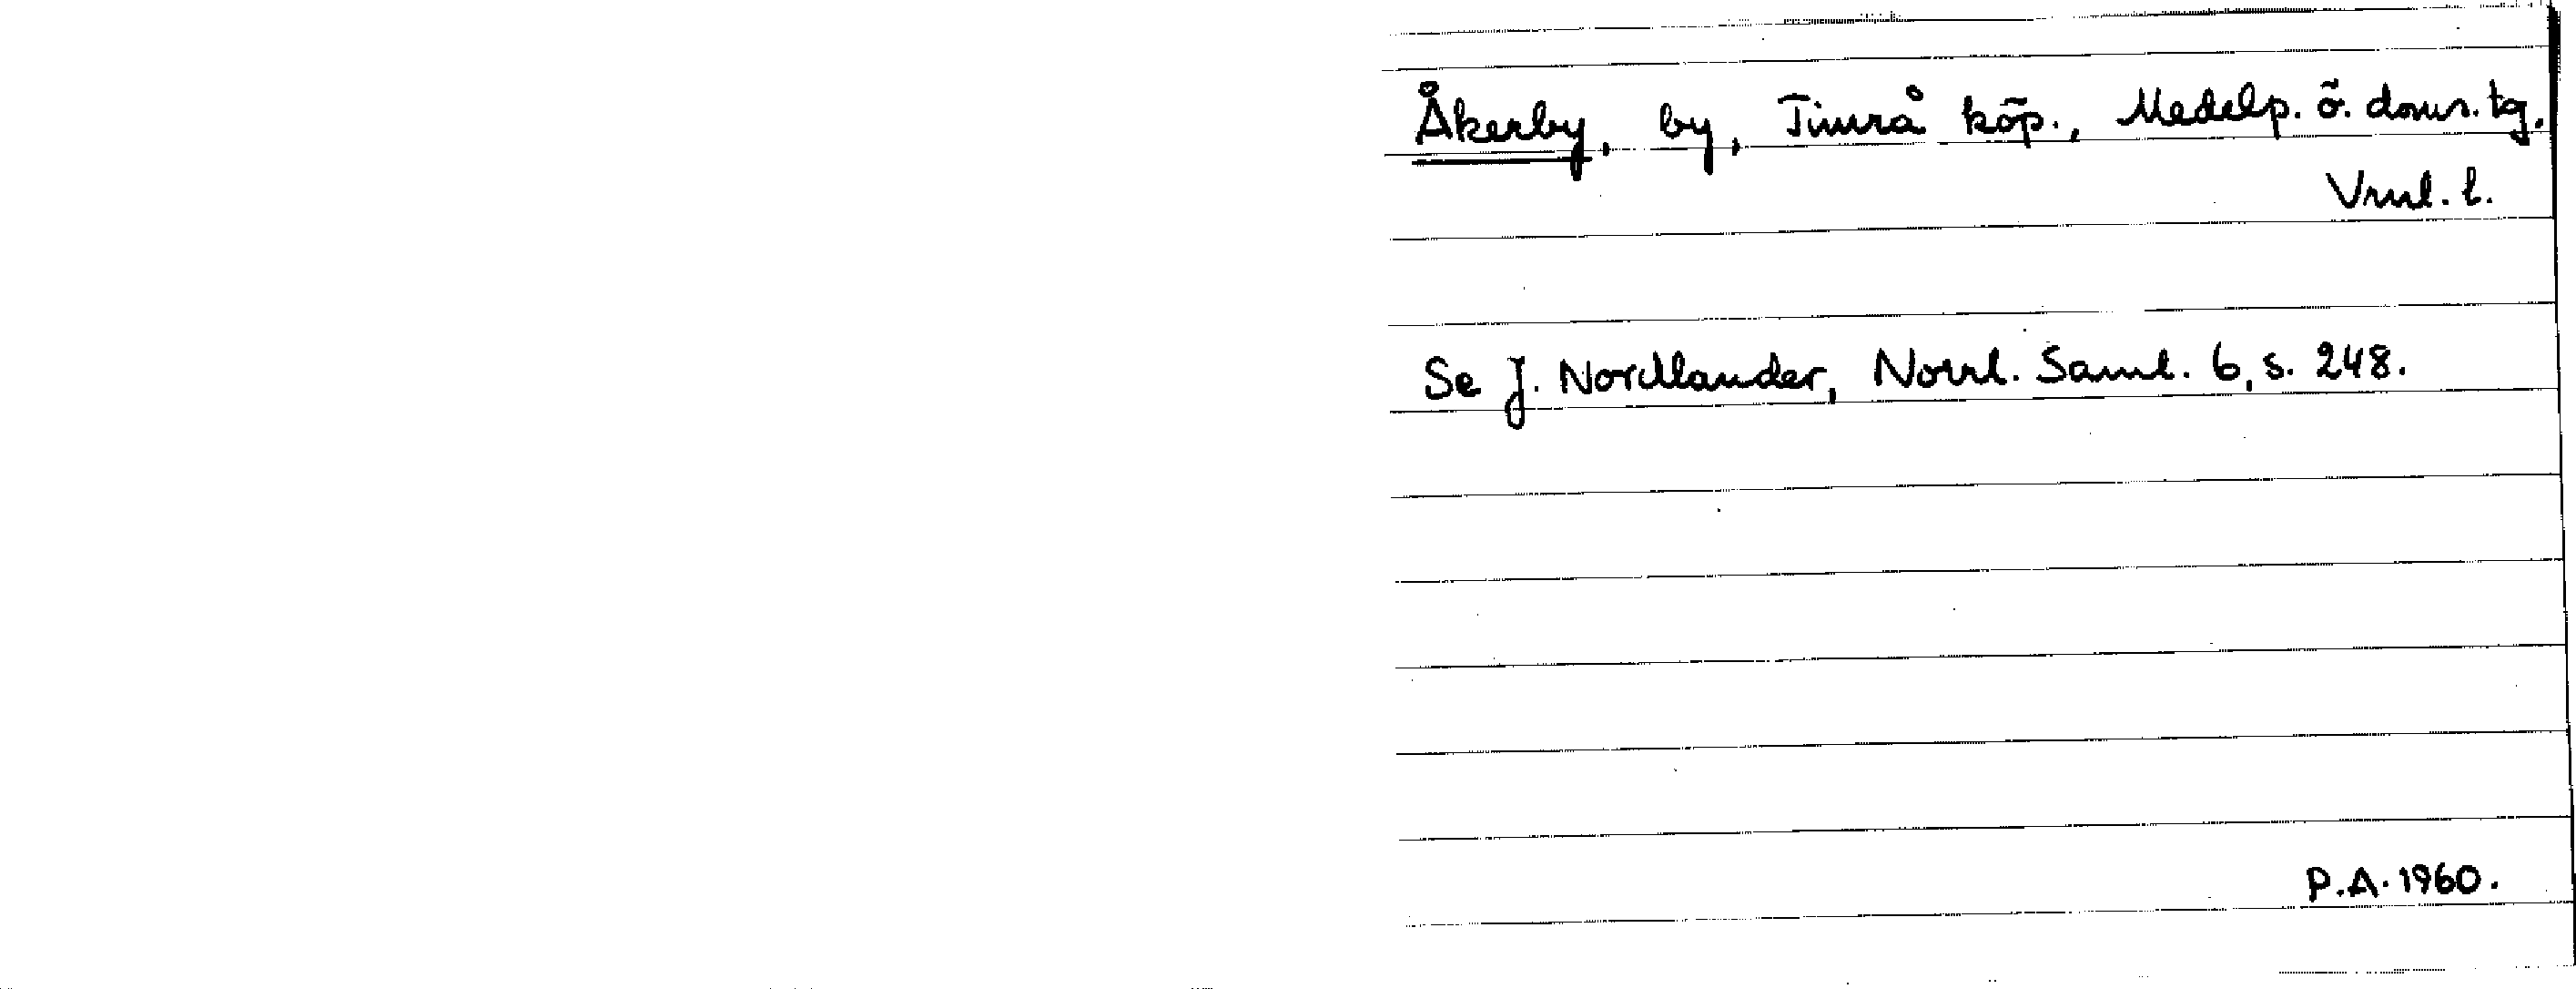 Åkerby, by, Timrå köp., Medelp. ö. doms. tg,
Vrnl. l.
Se J. Nordlander, Norrl. Saml. 6, s. 248.
P.A. 1960.